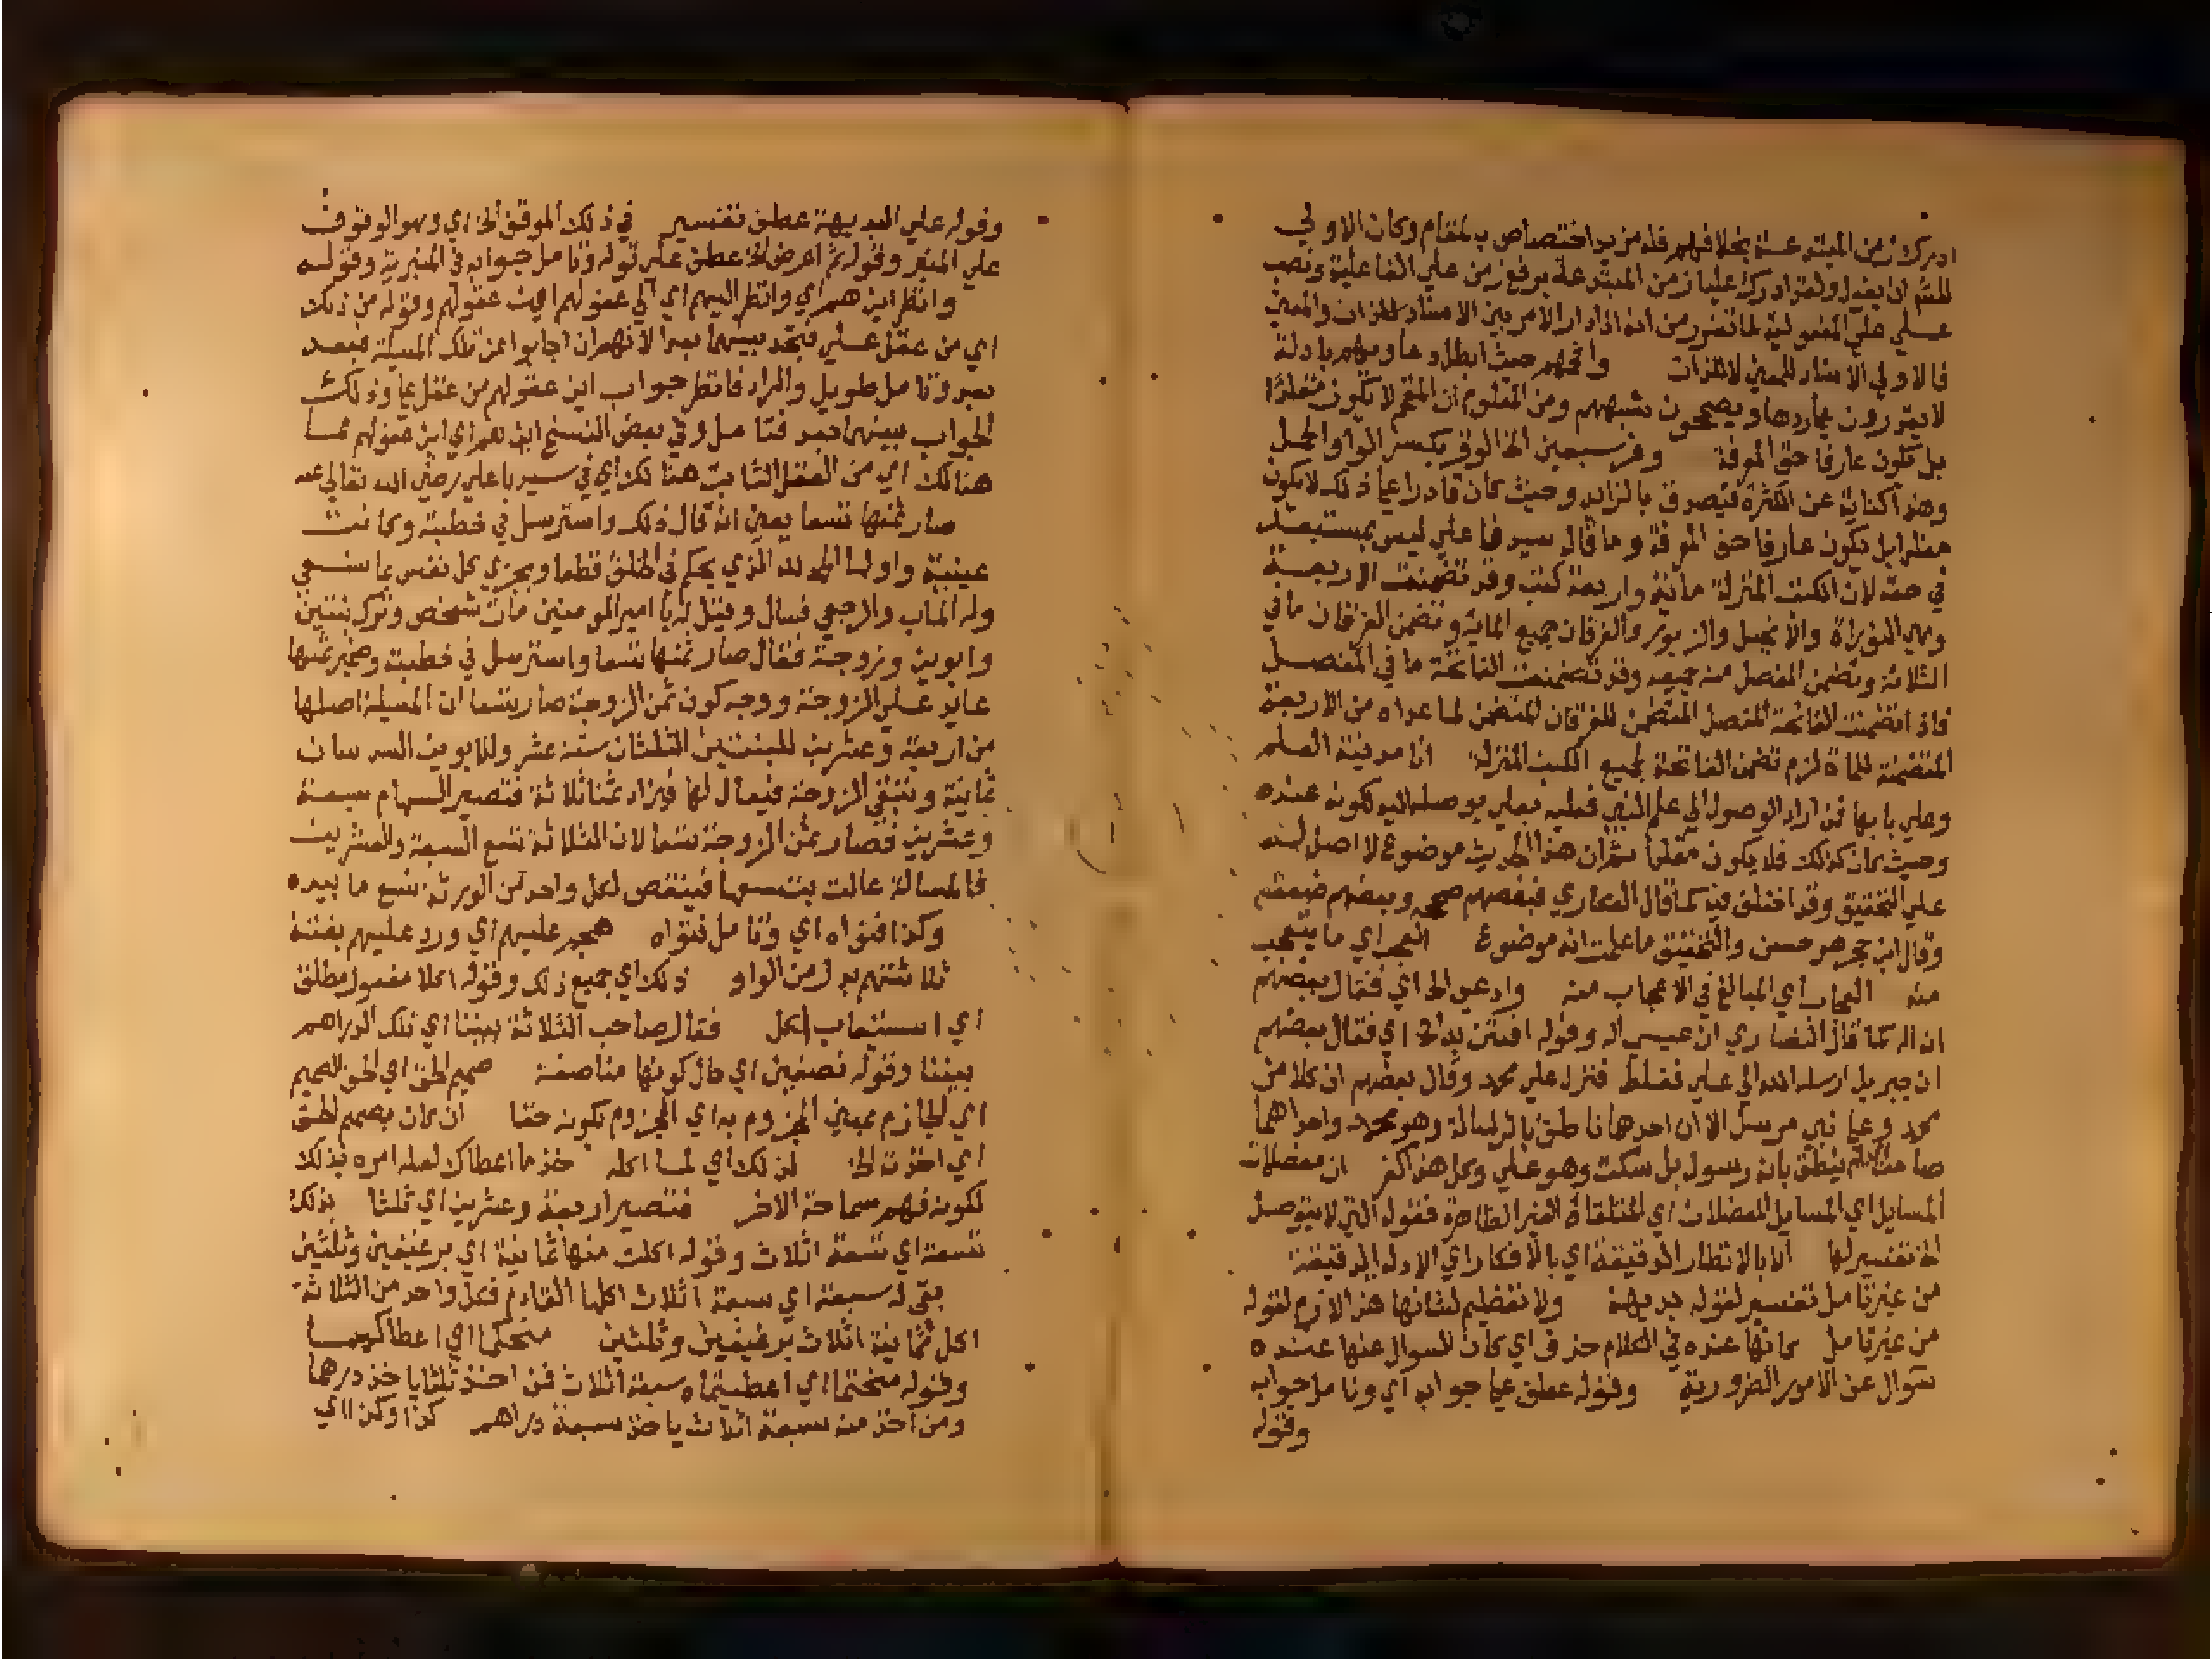 ادرك زمن المبتدعة بخلافهم فله مزيد اختصاص بالمقام وكان الاولي
للشم ان يقول ولقد ادرك عليا زمن المبتدعة برفع زمن علي الفاعلية ونصب
علي علي المفعولية لما تقرر من انه اذا دار الامر بين الاسناد للذات والمعني
فالاولي الاسناد للمعني لا للذات وافحمهم حيث ابطل دعاويهم بادلة
لا يقدرون علي ردها ويصححون شبههم ومن المعلوم ان المفحم لا يكون مقلدا
بل يكون عارفا حق المعرفة وقر سبعين الخ الوقر بكسر الواو الحمل
وهذا كناية عن الكثرة فيصدق بالزايد وحيث كان قادرا علي ذلك لا يكون
مقلدا بل يكون عارفا حق المعرفة وما قاله سيدنا علي ليس بمستبعد
في حقه لان الكتب المنزلة ماية واربعة كتب وقد تضمنت الاربعة
وهي التوراة والانجيل والزبور والفرقان جميع الماية وتضمن الفرقان ما في
الثلاثة وتضمن المفصل منه جميعه وقد تضمنت الفاتحة ما في المفصل
فاذا تضمنت الفاتحة المفصل المتضمن للفرقان المتضمن لما عداه من الاربعة
المتضمنة للماة لزم تضمن الفاتحة لجميع الكتب المنزلة انا مدينة العلم
وعلي بابها فمن اراد الوصول الي علم النبي فعليه بعلي يوصله اليه لكونه عنده
وحيث كان كذلك فلا يكون مقلدا ثم ان هذا الحديث موضوع لا اصل له
علي التحقيق وقد اختلف فيه كما قال الغماري فبعضهم صححه وبعضهم ضعفه
وقال ابن حجر هو حسن والتحقيق ما علمت انه موضوع العجب اي ما يتعجب
منه العجاب اي المبالغ في الاعجاب منه وادعي الخ اي فقال بعضهم
انه اله كما قال النصاري ان عيسي اله وقوله افتتن به الخ اي فقال بعضهم
ان جبريل ارسله الله الي علي فغلط فنزل علي محمد وقال بعضهم ان كلا من
محمد وعلي نبي مرسل الا ان احدهما ناطق بالرسالة وهو محمد واحدهما
صامت لم ينطق بانه رسول بل سكت وهو علي وكل هذا كفر ان معضلات
المسايل اي المسايل المعضلات اي المغلقات الغير الظاهرة فقوله التي لا يتوصل
الخ تفسير لها الا بالانظار الدقيقة اي بالافكار اي الادلة الدقيقة
من غير تامل تفسير لقوله بديهة ولا تعظيم لشانها هذا لازم لقوله
من غير تامل كانها عنده في الكلام حذف اي كان السوال عنها عنده
سوال عن الامور الضرورية وقوله عطف علي جواب اي وتامل جواب
وقوله
وقوله علي البديهة عطف تفسير في ذلك الموقف الخ اي وهو الوقوف
علي المنبر وقوله ثم اعرض الخ عطف علي قوله وتامل جوابه في المنبرية وقوله
وانظر اين هم اي وانظر اليهم اي الي عقولهم اين عقولهم وقوله من ذلك
اي من عقل علي فتجد بينهما بعدا لانهم ان اجابوا عن تلك المسيلة فبعد
بعد وتامل طويل والمراد فانظر جواب اين عقولهم من عقل علي وذلك
الجواب بينهما بعد فتامل وفي بعض النسخ اين هم اي اين عقولهم مما
هنالك اي من العقل الثابت هنالك اي في سيدنا علي رضي الله تعالي عنه
صار ثمنها تسعا يعني انه قال ذلك واسترسل في خطبته وكانت
عينية واولها الحمد لله الذي يحكم في الخلق قطعا ويجزي كل نفس بما تسعي
وله الماب والرجعي فسال وقيل له يا امير المومنين مات شخص وترك بنتين
وابوين وزوجة فقال صار ثمنها تسعا واسترسل في خطبته وضمير ثمنها
عايد علي الزوجة ووجه كون ثمن الزوجة صار تسعا ان المسيلة اصلها
من اربعة وعشرين للبنتين الثلثان ستة عشر وللابوين السدسان
ثمانية وتبقي الزوجة فيعال لها فيزاد ثمنا ثلاثة فتصير السهام سبعة
وعشرين فصار ثمن الزوجة تسعا لان الثلاثة تسع السبعة والعشرين
فالمسالة عالت بتسعها فينقص لكل واحد من الورثة تسع ما بيده
وكذا فتواه اي وتامل فتواه هجم عليهم اي ورد عليهم بغتة
ثالثهم بدل من الواو ذلك اي جميع ذلك وقوله اكلا مفعول مطلق
اي استيعاب الكل فقال صاحب الثلاثة بيننا اي تلك الدراهم
بيننا وقوله نصفين اي حال كونها مناصفة صميم الحق اي الحق الصميم
اي الجازم بمعني المجزوم به اي المجزوم بكونه حقا ان كان بصميم الحق
اي اخذت الخ لذلك اي لما اكله خذ ما اعطاك لعله امره بذلك
لكونه فهم سماحة الاخر فتصير اربعة وعشرين اي ثلثا بذلك
تسعة اي تسعة اثلاث وقوله اكلت منها ثمانية اي برغيفين وثلثين
بقي له سبعة اي سبعة اثلاث اكلها القادم فكل واحد من الثلاثة
اكل ثمانية اثلاث برغيفين وثلثين منحكما اي اعطاكما
وقوله منحتما اي اعطيتماه سبعة اثلاث فمن اخذ ثلثا ياخذ درهما
ومن اخذ منه سبعة اثلاث ياخذ سبعة دراهم كذا وكذا اي